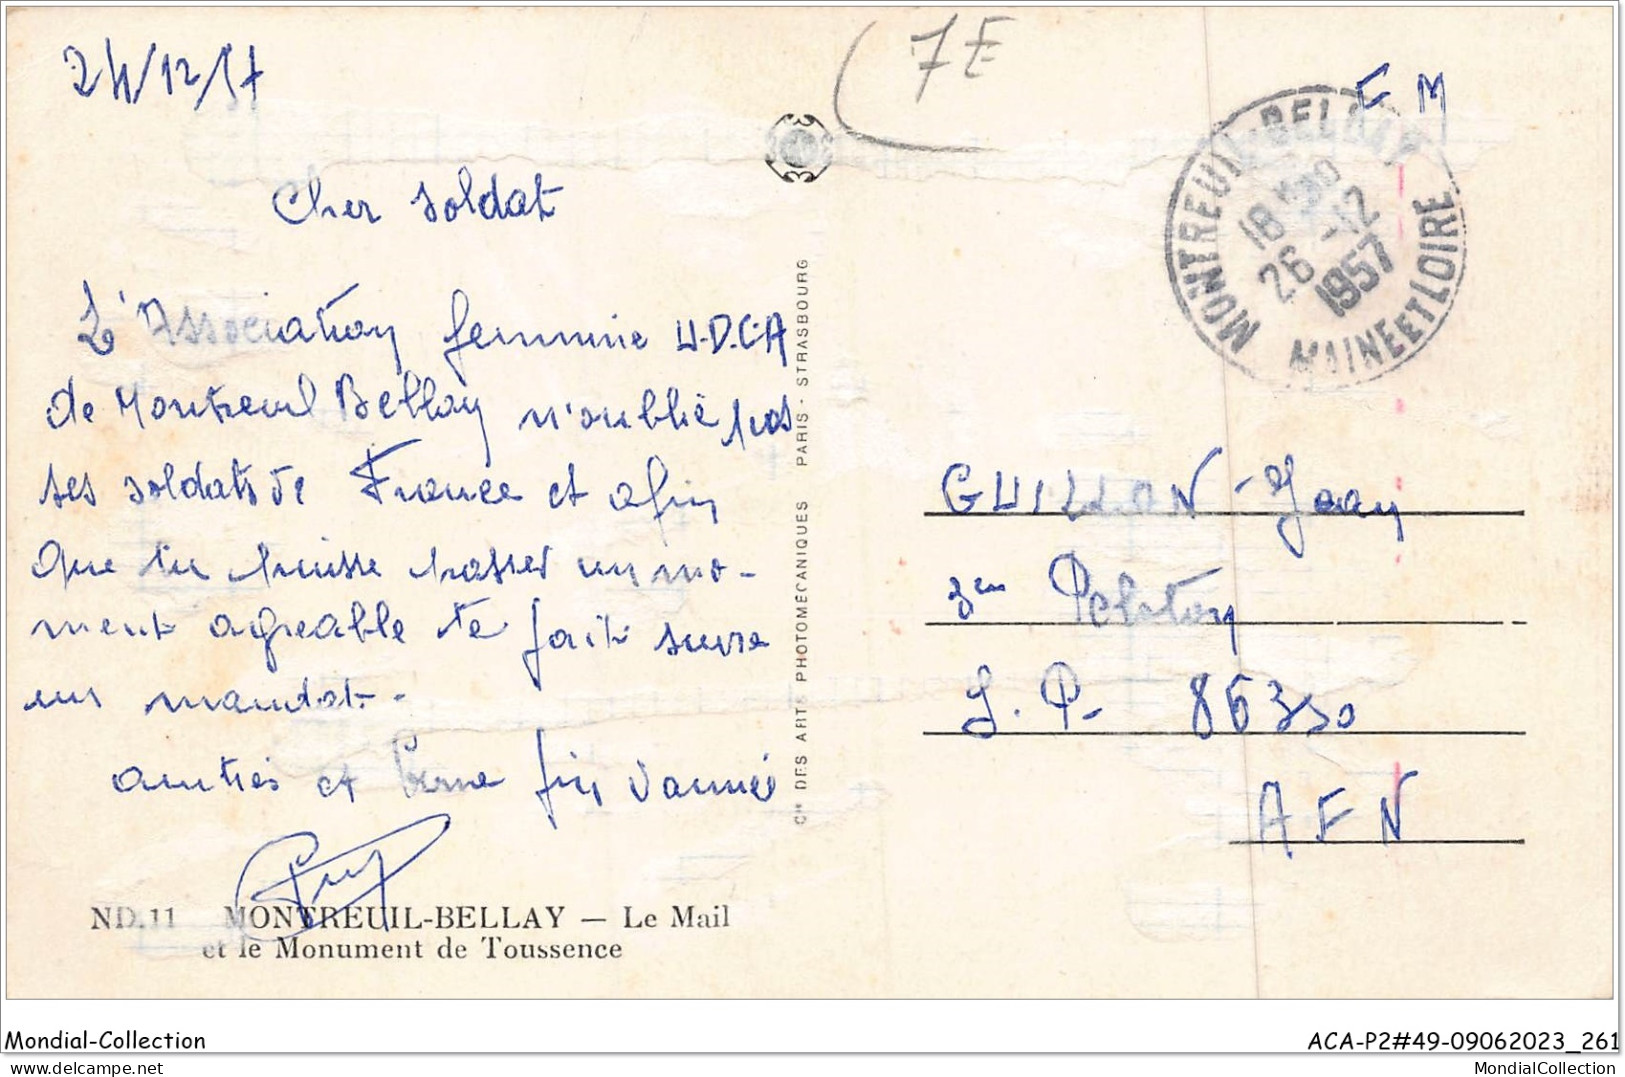 24/12/57
7E
F M
MONTREUIL-BELLAY
18H30
26 -12
1957
MAINE ET LOIRE
Cher soldat
L'Association feminine U.D.C.A
de Montreuil Bellay n'oublie pas
ses soldats de France et afin
que tu puisse passer un mo-
ment agreable te fait suivre
un mandat.
amitiés et bonne fin d'année
ND.11 MONTREUIL-BELLAY — Le Mail
et le Monument de Toussence
Cie DES ARTS PHOTOMECANIQUES PARIS - STRASBOURG
GUILLON - Jean
3em Peloton
S.P. 86350
AFN
Mondial-Collection
ACA-P2#49-09062023_261
MondialCollection